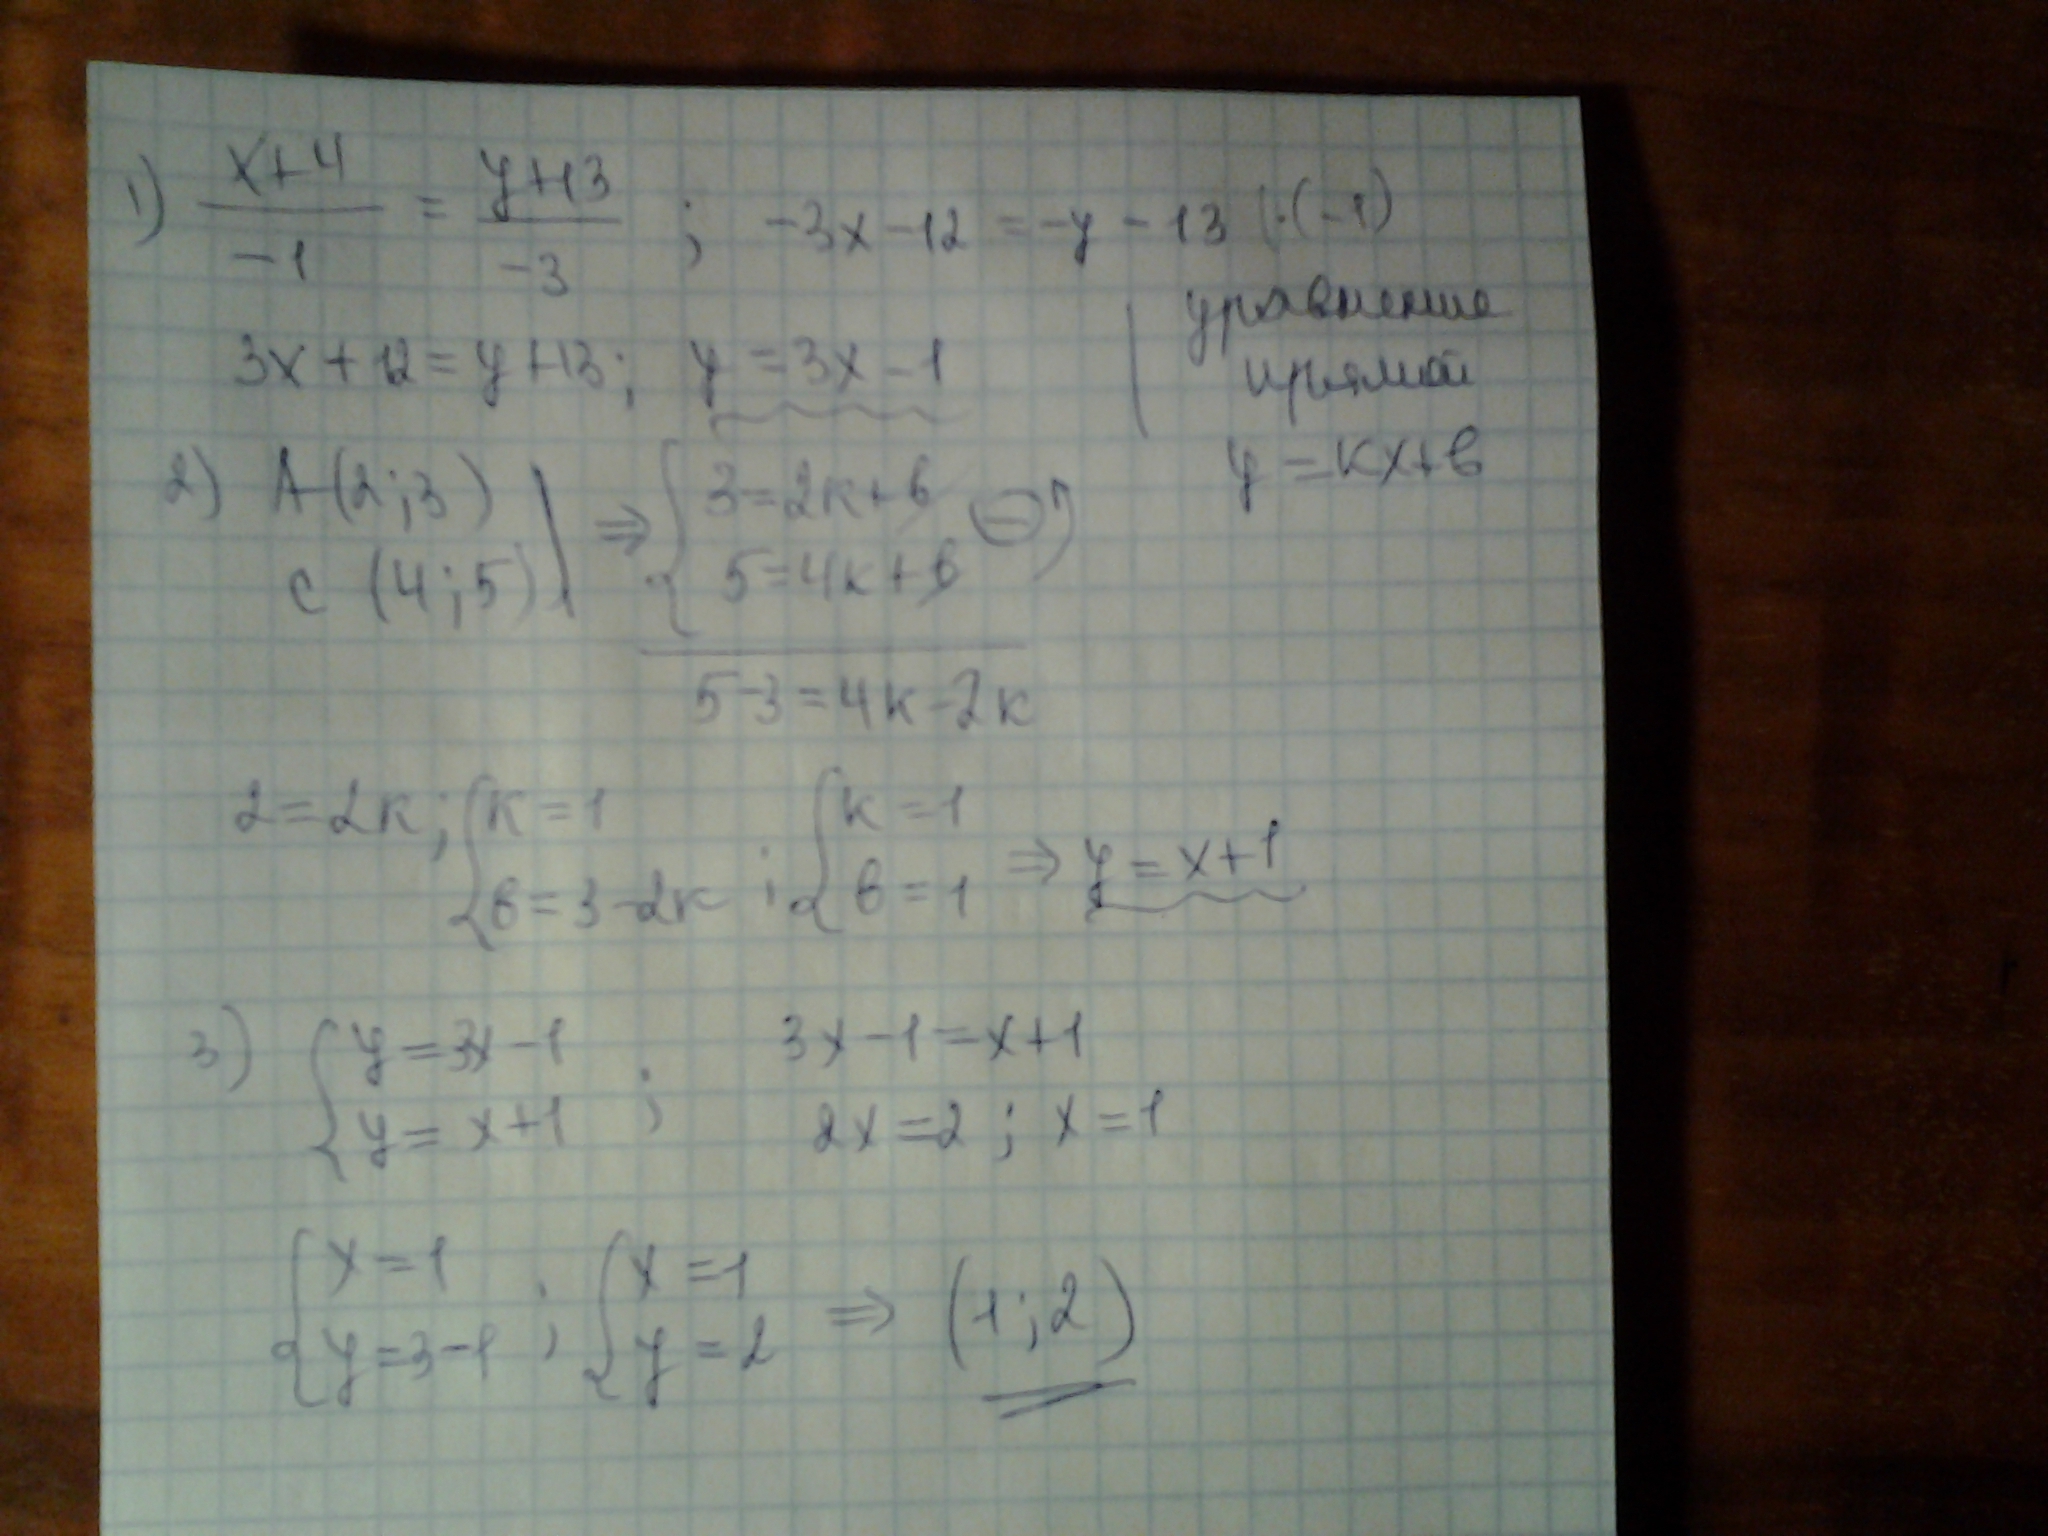 1) x+4/-1 = y+13/-3 ; -3x-12 = -y-13 |·(-1)
3x+12=y+13; y=3x-1
уравнение
прямой
y=kx+b
2) A(2;3)
C(4;5) ⇒ { 3=2k+b
5=4k+b (-)
5-3=4k-2k
2=2k; { k=1
b=3-2k ; { k=1
b=1 ⇒ y=x+1
3) { y=3x-1
y=x+1 ; 3x-1=x+1
2x=2; x=1
{ x=1
y=3-1 ; { x=1
y=2 ⇒ (1;2)